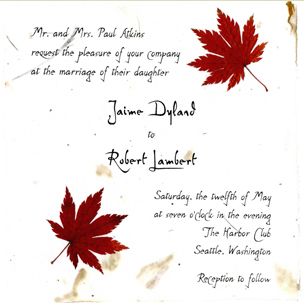 Mr. and Mrs. Paul Atkins
request the pleasure of your company
at the marriage of their daughter
Jaime Dyland
to
Robert Lambert
Saturday, the twelfth of May
at seven o'clock in the evening
The Harbor Club
Seattle, Washington
Reception to follow